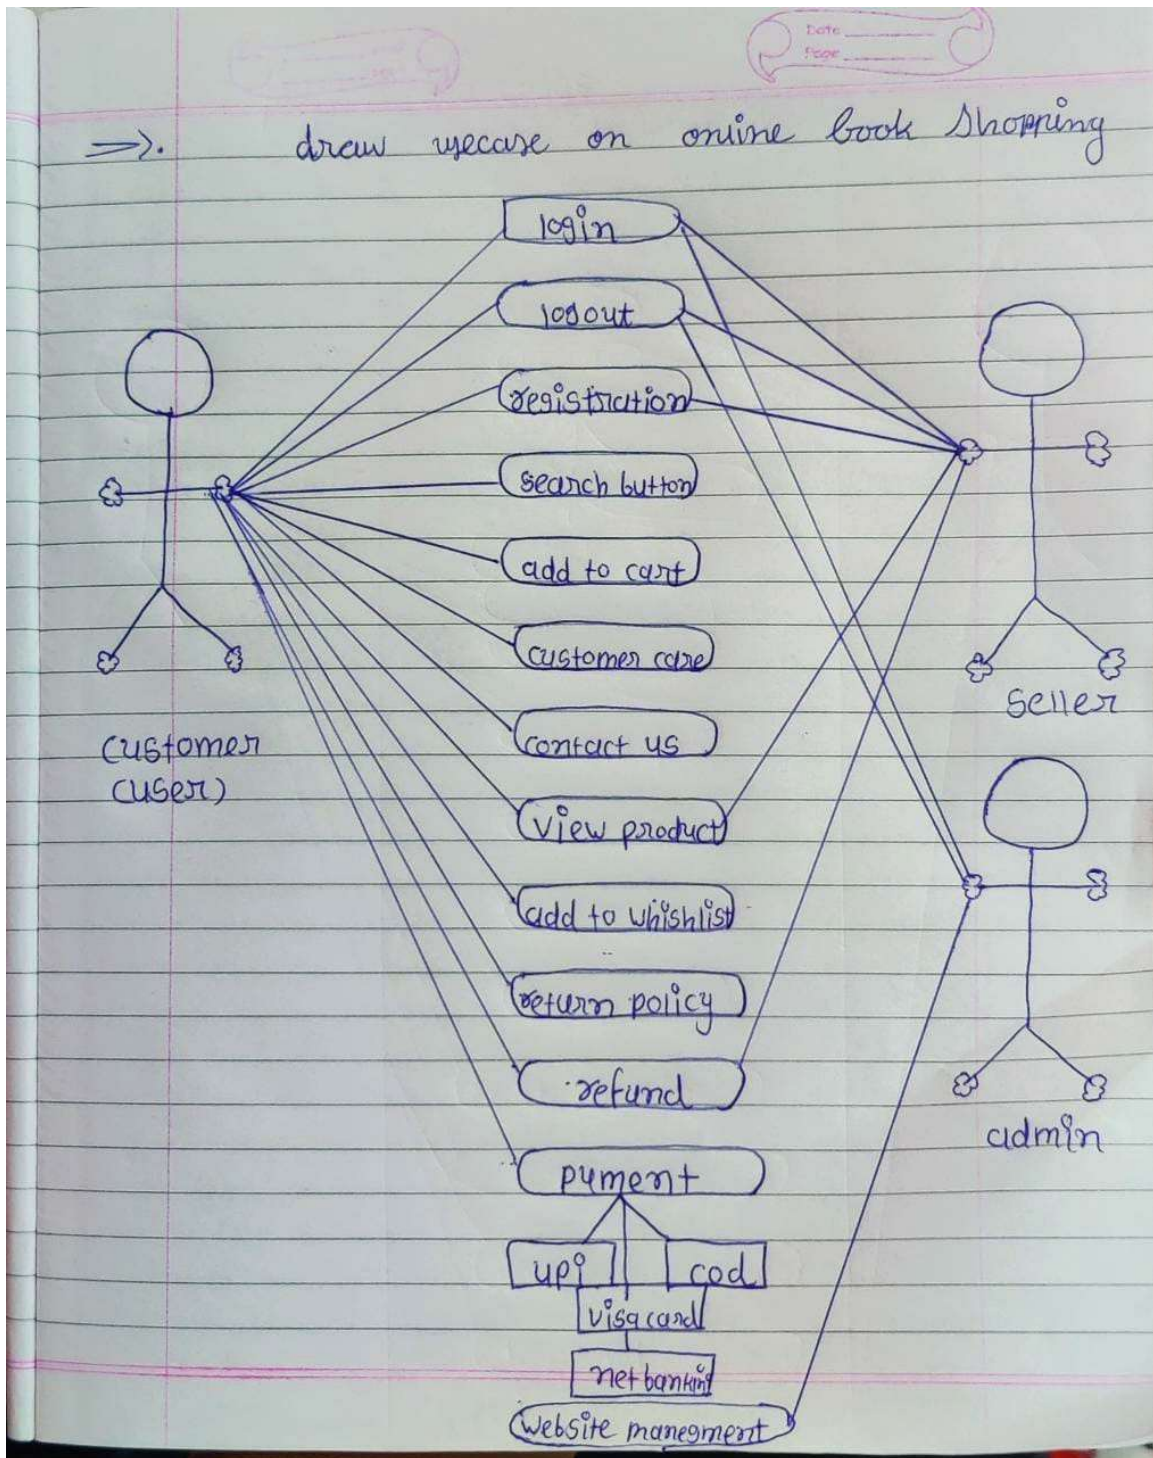 Date
Page
⇒. draw usecase on online book shopping
login
logout
registration
search button
add to cart
customer care
contact us
view product
add to whishlist
return policy
refund
pyment
upi cod
visa card
net banking
website manegment
customer
(user)
seller
admin